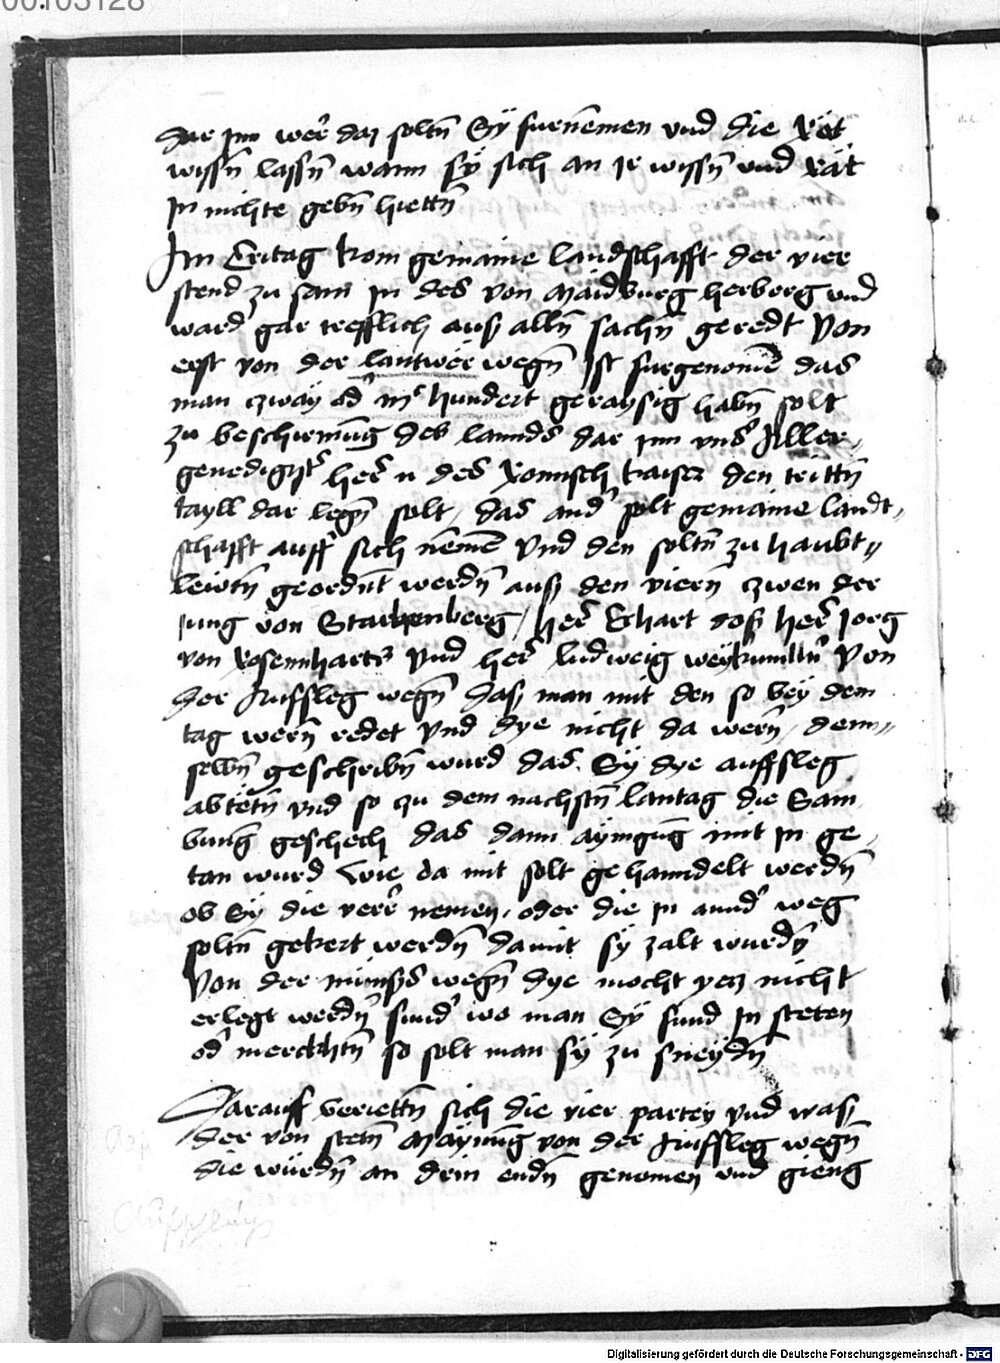 00103128
dar Inn wer̄ daz soltn̄ Sÿ furnemen vnd die Rět
wissn̄ lassn̄ wann sÿ sich an Ir wissn̄ vnd Rät
In nichte gebn̄ hiettn̄
Im Eritag kom gemaine landschafft der vier
stend zu sam In des von Maidburg herberg vnd
ward gar trefflich auß alln̄ sachn̄ geredt Von
erst von der lantwer wegn̄ Ist furgenomē das
man zway od' hundert geraysig habn̄ solt
zu beschirmūg des lannds dar Inn vnsr̄ Aller„
genedigist' her̄ der Romisch kaiser den trittn̄
tayll dar legn̄ solt / das and' solt gemaine landt„
schafft auff sich nemē vnd den soltn̄ zu haubt„
lewtn̄ geordn̄t werdn̄ auß den viern̄ zwen der
Jung von Starhenberg / her̄ Ekhart her̄ Jorg
von Rosennharts vnd her̄ ludweig weÿkumllr̄ Von
der Auffsleg wegn̄ das man mit den so bey dem
tag wern̄ redet vnd dye nicht da wern̄ / denn„
selbn̄ geschribn̄ wurd das Sÿ dye auffsleg
abtetn̄ vnd so zu dem nachstn̄ lantag die Sam
bung geschech das dann aÿmgūg mit In ge„
tan wurd Wie da mit solt gehanndelt werdn̄
ob Sÿ die verr̄ nemen / oder die In annd' weg
soltn̄ gekert werdn̄ damit sÿ zalt wurdn̄
Von der münss wegn̄ dye mocht yetz nicht
erlegt werdn̄ sund' wo man Sÿ fund In steten
od' merckhtn̄ so solt man sÿ zu sneydn̄
Darauff berrettn̄ sich die vier partey vnd was
der von stetn̄ Maÿnūg von der Auffsleg wegn̄
die würdn̄ an drin endn̄ genomen vnd gieng
Auffschläg
Digitalisierung gefördert durch die Deutsche Forschungsgemeinschaft - DFG